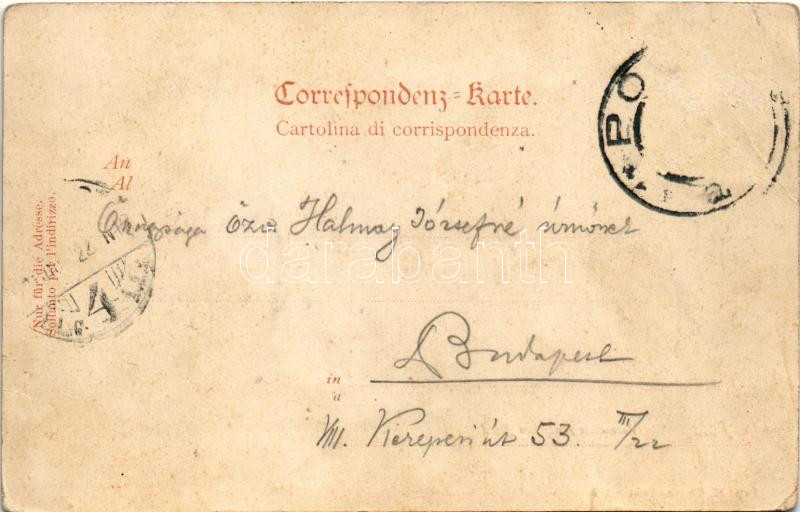 Correspondenz-Karte.
Cartolina di corrispondenza.
An
Al
Őnagysága özv Halmay Józsefné úrnőnek
Budapest
in
a
VII. Kerepesi út 53. III/22
Nur für die Adresse.
Soltanto per l'indirizzo.
PO
22
4
darabanth